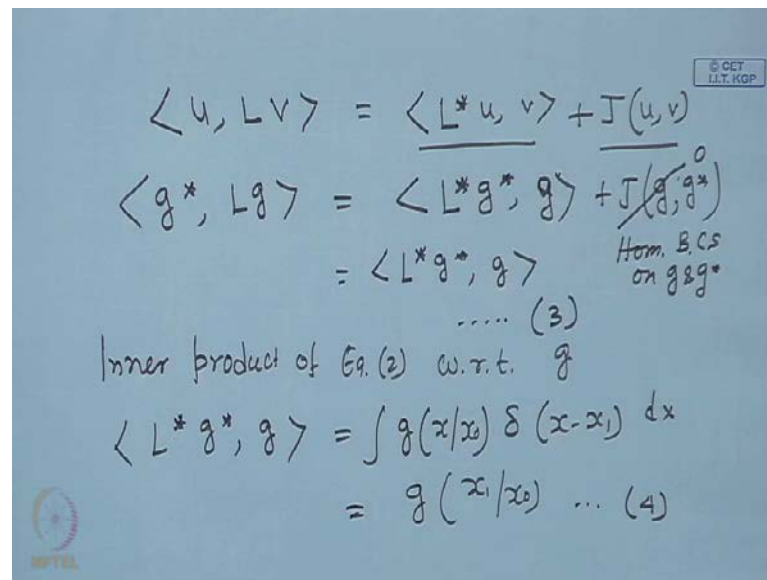 © CET
I.I.T. KGP
< u, L v > = < L* u, v > + J(u, v)
< g*, L g > = < L* g*, g > + J(g, g*) 0
Hom. B.C.S
on g & g*
= < L* g*, g >
..... (3)
Inner product of Eq. (2) w.r.t. g
< L* g*, g > = ∫ g(x/x₀) δ (x-x₁) dx
= g (x₁/x₀) ... (4)
NPTEL